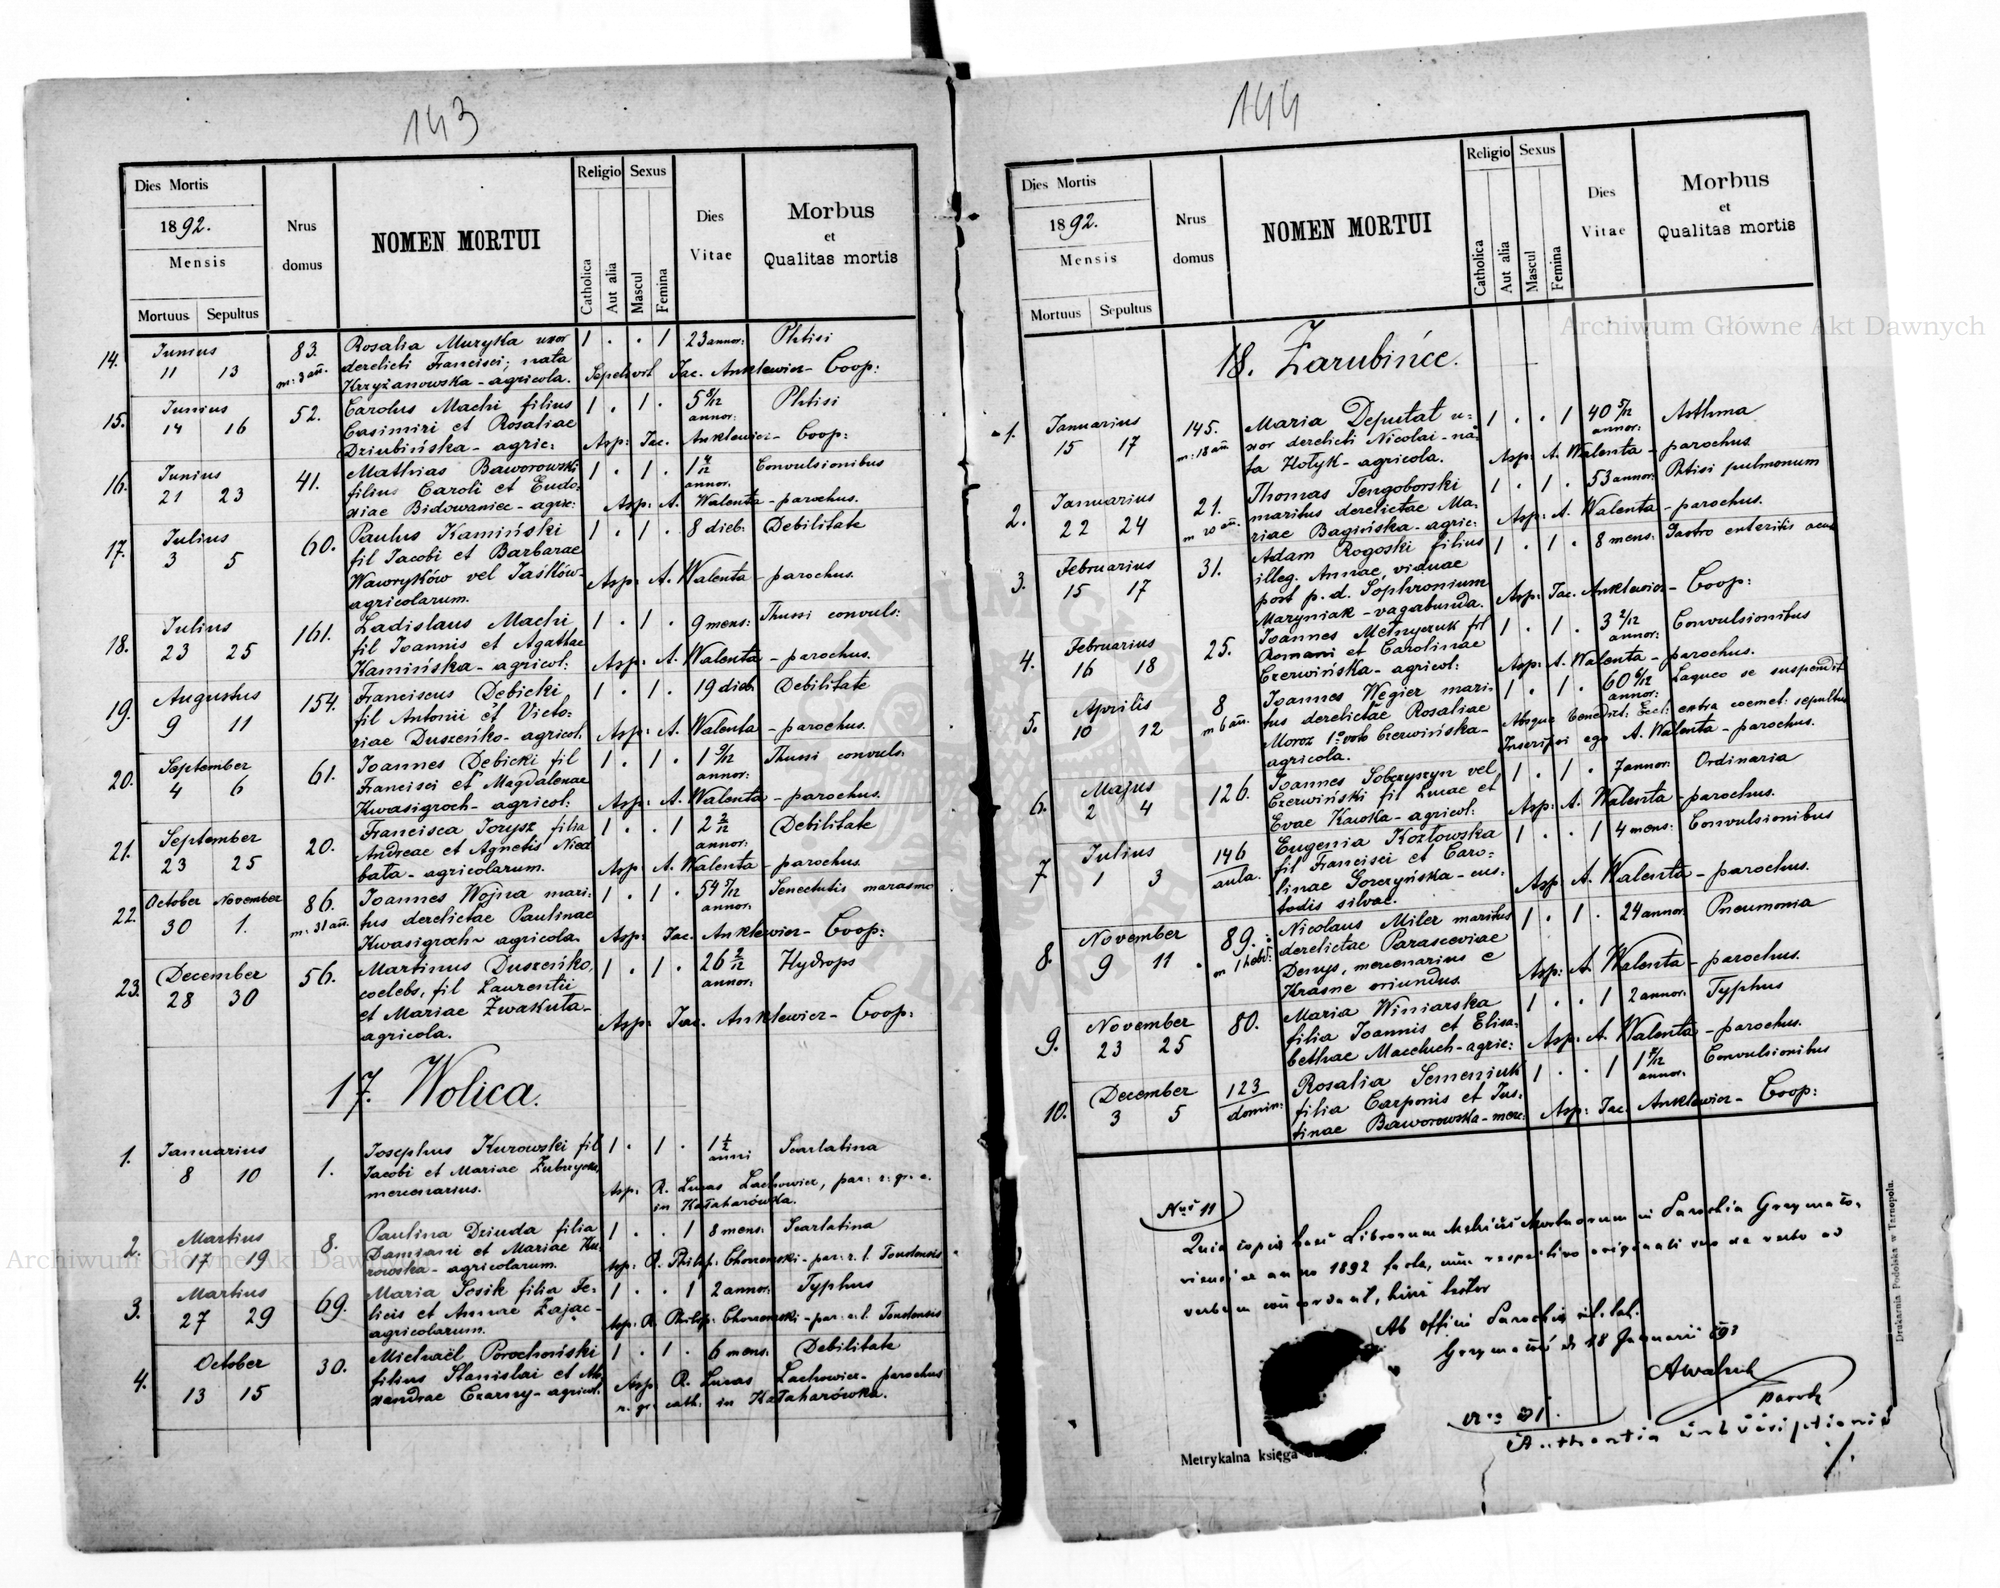 143
Dies Mortis
1892.
Mensis
Mortuus Sepultus
Nrus
domus
NOMEN MORTUI
Religio
Catholica
Aut alia
Sexus
Mascul
Femina
Dies
Vitae
Morbus
et
Qualitas mortis
14. Junius 83. Rosalia Muzyka uxor 1 . . 1 23 annor: Phtisi
11 13 m: 3 añ. derelicti Francisci, nata
Krzyżanowska - agricola. Sepelivit Jac. Anklewicz - Coop:
15. Junius 52. Carolus Machi filius 1 . 1 . 5 8/12 annor: Phtisi
14 16 Casimiri et Rosaliae
Dziubińska - agric: Asp: Jac. Anklewicz - Coop:
16. Junius 41. Mathias Baworowski 1 . 1 . 1 4/12 annor. Convulsionibus
21 23 filius Caroli et Eudo-
xiae Bidowaniec - agric: Asp: A. Walenta - parochus.
17. Julius 60. Paulus Kamiński 1 . 1 . 8 dieb: Debilitate
3 5 fil Jacobi et Barbarae
Wawryków vel Jaśków- Asp: A. Walenta - parochus.
agricolarum.
18. Julius 161. Ladislaus Machi 1 . 1 . 9 mens: Thussi convuls:
23 25 fil Joannis et Agathae
Kamińska - agricol: Asp: A. Walenta - parochus.
19. Augustus 154. Franciscus Debicki 1 . 1 . 19 dieb Debilitate
9 11 fil Antonii et Victo-
riae Duszeńko - agricol. Asp: A. Walenta - parochus.
20. September 61. Joannes Debicki fil 1 . 1 . 1 9/12 annor: Thussi convuls:
4 6 Francisci et Magdalenae
Kwasigroch - agricol: Asp: A. Walenta - parochus.
21. September 20. Francisca Jorysz filia 1 . . 1 2 2/12 annor: Debilitate
23 25 Andreae et Agnetis Nied
bała - agricolarum. Asp: A. Walenta - parochus.
22. October November 86. Joannes Wojna mari- 1 . 1 . 54 7/12 annor. Senectutis marasmo
30 1. m: 31 añ. tus derelictae Paulinae
Kwasigroch - agricola. Asp: Jac. Anklewicz - Coop:
23. December 56. Martinus Duszeńko, 1 . 1 . 26 2/12 annor: Hydrops
28 30 coelebs, fil Laurentii
et Mariae Zwakuła- Asp: Jac. Anklewicz - Coop:
agricola.
17. Wolica.
1. Januarius 1. Josephus Kurowski fil 1 . 1 . 1 1/2 anni Scarlatina
8 10 Jacobi et Mariae Zubrycka
mercenarius. Asp: R. Lucas Lachowicz, par: r: gr: c.
in Kałaharówka.
2. Martius 8. Paulina Dziuda filia 1 . . 1 8 mens: Scarlatina
17 19 Damiani et Mariae Ku-
rowska - agricolarum. Asp: R. Philip: Chorzemski - par: r. l. Toustensis
3. Martius 69. Maria Sosik filia Fe- 1 . . 1 2 annor: Typhus
27 29 licis et Annae Zając-
agricolarum. Asp: R. Philip: Chorzemski - par: r. l. Toustensis
4. October 30. Michaël Porochoński 1 . 1 . 6 mens. Debilitate
13 15 filius Stanislai et Ale
xandrae Czarny - agricol. Asp: R. Lucas Lachowicz - parochus
r. gr. cath: in Kałaharówka.
144
Dies Mortis
1892.
Mensis
Mortuus Sepultus
Nrus
domus
NOMEN MORTUI
Religio
Catholica
Aut alia
Sexus
Mascul
Femina
Dies
Vitae
Morbus
et
Qualitas mortis
18. Zarubińce.
1. Januarius 145. Maria Deputat u- 1 . . 1 40 5/12 annor: Asthma
15 17 m: 18 añ xor derelicti Nicolai - na-
ta Hołyk - agricola. Asp: A. Walenta - parochus.
2. Januarius 21. Thomas Tengoborski 1 . 1 . 53 annor: Phtisi pulmonum
22 24 m 20 añ. maritus derelictae Ma-
riae Bagińska - agric: Asp: A. Walenta - parochus.
3. Februarius 31. Adam Rogoski filius 1 . 1 . 8 mens: Gastro enteritis acut
15 17 illeg. Annae viduae
post p. d. Sophronium
Maryniak - vagabunda. Asp: Jac. Anklewicz - Coop:
4. Februarius 25. Joannes Melnyczuk fil 1 . 1 . 3 2/12 annor: Convulsionibus
16 18 Romani et Carolinae
Czerwińska - agricol: Asp: A. Walenta - parochus.
5. Aprilis 8 Joannes Węgier mari- 1 . 1 . 60 6/12 annor: Laqueo se suspendit
10 12 m 6 añ. tus derelictae Rosaliae Absque benedict: Eccl: extra coemet: sepultus
Moroz 1º voto Czerwińska- Inscripsi ego A. Walenta - parochus.
agricola.
6. Majus 126. Joannes Sobczyszyn vel 1 . 1 . 7 annor: Ordinaria
2 4 Czerwiński fil Lucae et
Evae Kawka - agricol: Asp: A. Walenta - parochus.
7 Julius 146 Eugenia Kozłowska 1 . . 1 4 mens: Convulsionibus
1 3 aula. fil Francisci et Caro-
linae Gorczyńska - cus-
todis silvae. Asp A. Walenta - parochus.
8. November 89. Nicolaus Miler maritus 1 . 1 . 24 annor: Pneumonia
9 11 m 1 hebd: derelictae Parasceviae
Denys, mercenarius e
Krasne oriundus. Asp: A. Walenta - parochus.
9. November 80. Maria Winiarska 1 . . 1 2 annor: Typhus
23 25 filia Joannis et Elisa-
bethae Macełuch - agric: Asp: A. Walenta - parochus.
10. December 123 Rosalia Semeniuk 1 . . 1 1 7/12 annor: Convulsionibus
3 5 domin: filia Carponis et Jus-
tinae Baworowska - merc: Asp: Jac. Anklewicz - Coop:
Nus 11
Quia copia haec Librorum Metrices Mortuorum in Parochia Grzymało-
viensi ex anno 1892 facta, cum respectivo originali suo de verbo ad
verbum concordant, hinc testor
Ab officio Parochiae rit. lat.
Grzymałów d. 18 Januarii 893
AWalenta
paroch
Authentia subscriptionis
Metrykalna księga
Drukarnia Podolska w Tarnopolu.
Archiwum Główne Akt Dawnych
Archiwum Główne Akt Dawnych